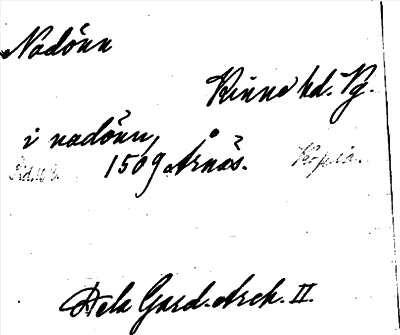 Nadónn
Kinne hd. Vg.
i nadónn,
1509 Årnäs. Kopia.
Dela Gard. Arch. II.